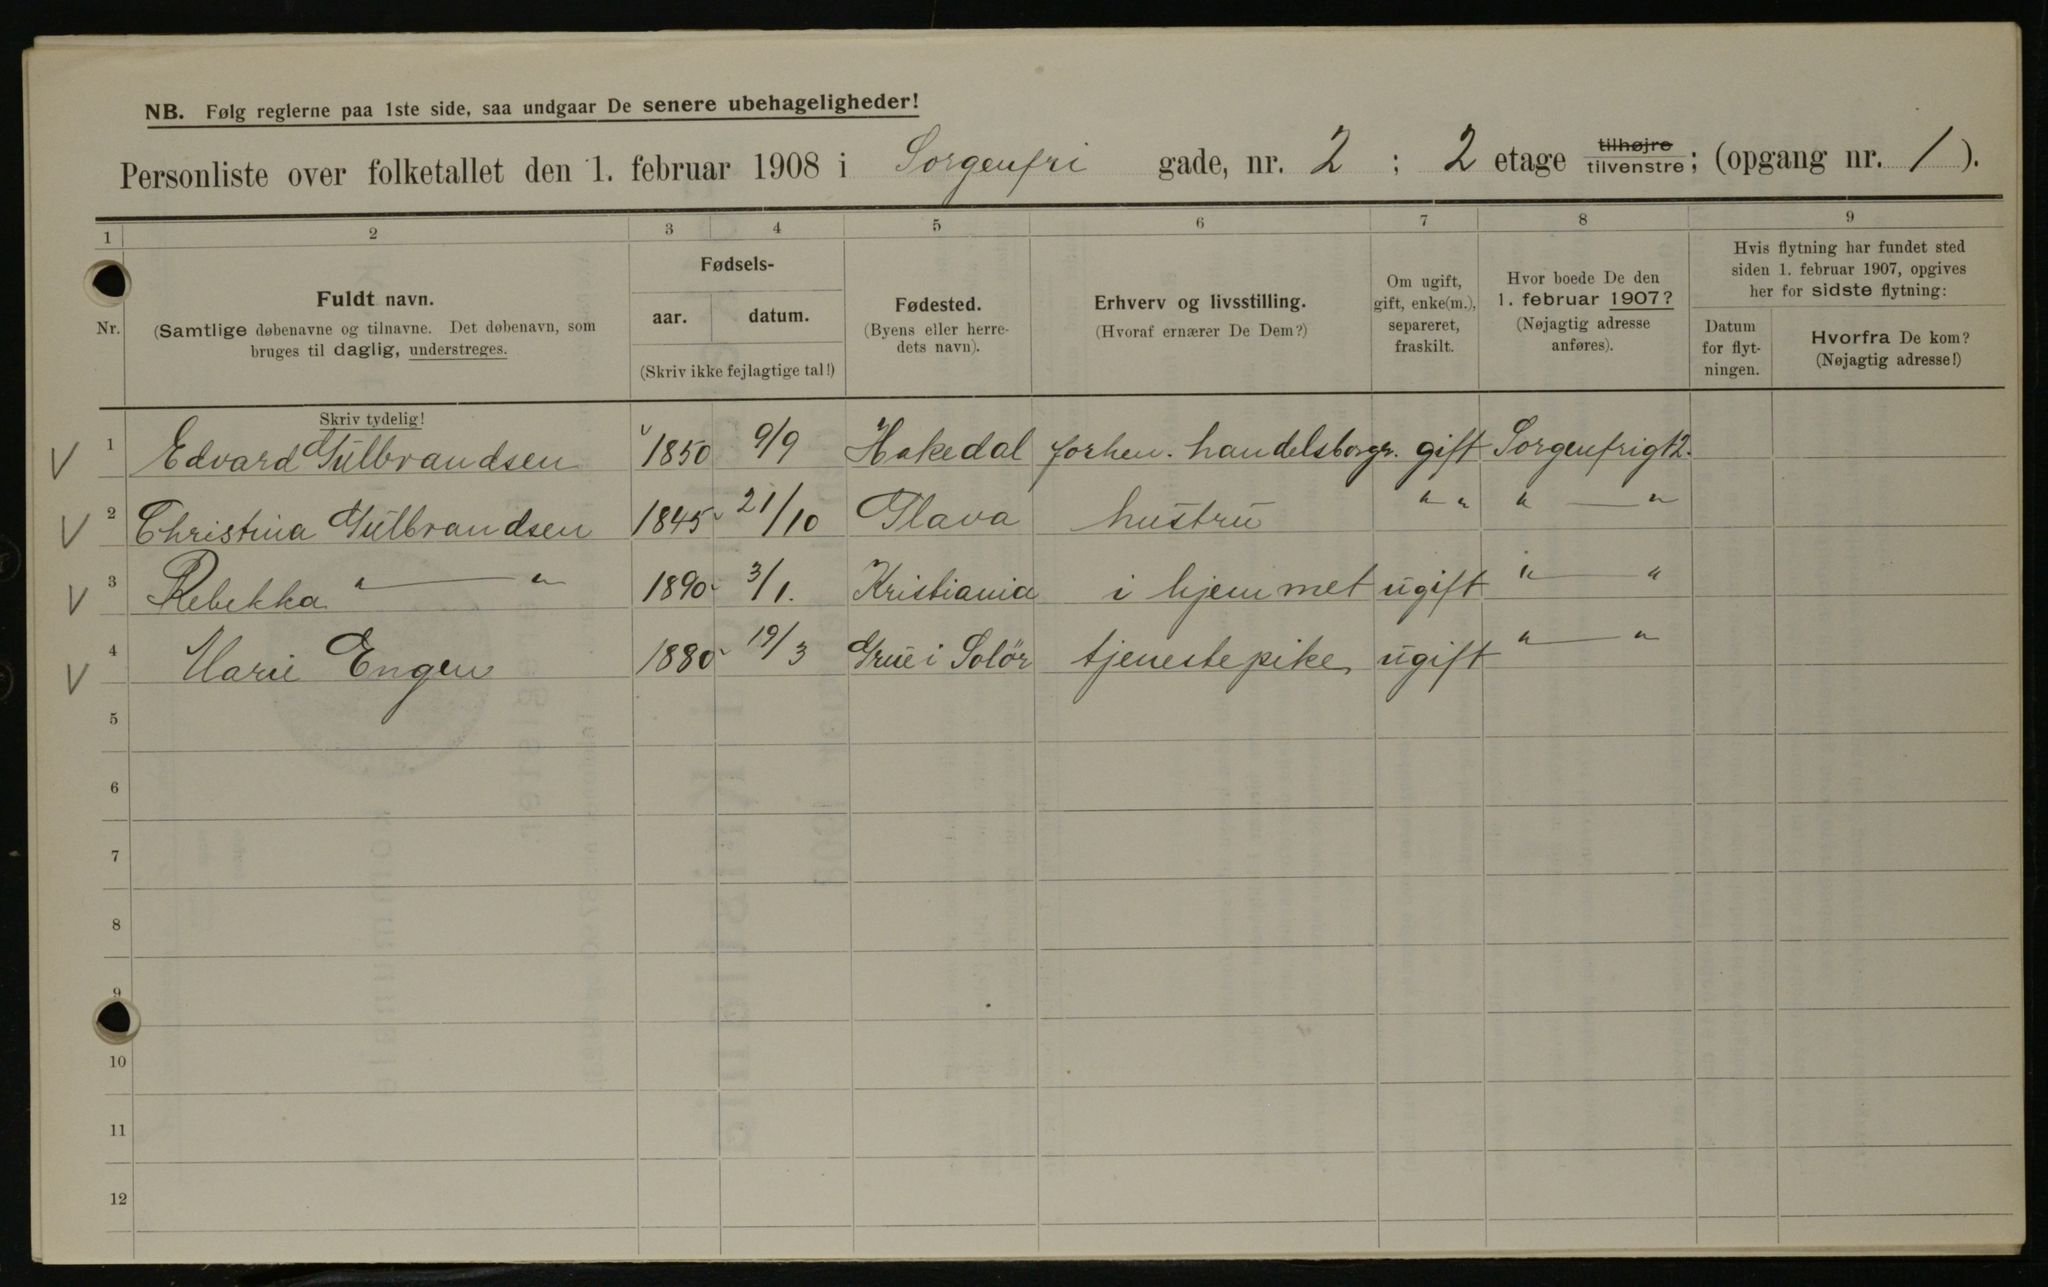 NB. Følg reglerne paa 1ste side, saa undgaar De senere ubehageligheder!
Personliste over folketallet den 1. februar 1908 i Sorgenfri gade, nr. 2 ; 2 etage tilhøjre tilvenstre; (opgang nr. 1 ).
1 2 3 4 5 6 7 8 9
Nr.
Fuldt navn.
(Samtlige døbenavne og tilnavne. Det døbenavn, som
bruges til daglig, understreges.
Skriv tydelig!
Fødsels-
aar. datum.
(Skriv ikke fejlagtige tal!)
Fødested.
(Byens eller herre-
dets navn).
Erhverv og livsstilling.
(Hvoraf ernærer De Dem?)
Om ugift,
gift, enke(m.),
separeret,
fraskilt.
Hvor boede De den
1. februar 1907?
(Nøjagtig adresse
anføres).
Hvis flytning har fundet sted
siden 1. februar 1907, opgives
her for sidste flytning:
Datum
for flyt-
ningen.
Hvorfra De kom?
(Nøjagtig adresse!)
V 1 Edvard Gulbrandsen 1850 9/9 Hakedal forhen. handelsborgr. gift Sorgenfrigt 2.
V 2 Christina Gulbrandsen 1845 21/10 Glava hustru " " " — "
V 3 Rebekka " — " 1890 3/1. Kristiania i hjemmet ugift " — "
V 4 Marie Engen 1880 19/3 Grue i Solör tjenestepike ugift " — "
5
6
7
8
9
10
11
12